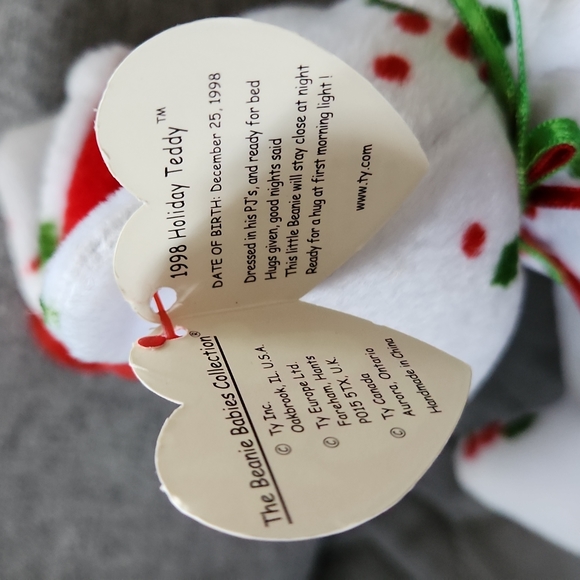 1998 Holiday Teddy ™
DATE OF BIRTH: December 25, 1998
Dressed in his PJ's, and ready for bed
Hugs given, good nights said
This little Beanie will stay close at night
Ready for a hug at first morning light !
www.ty.com
The Beanie Babies Collection®
© Ty Inc.
Oakbrook, IL, U.S.A.
© Ty Europe, Hants
Fareham, Hants